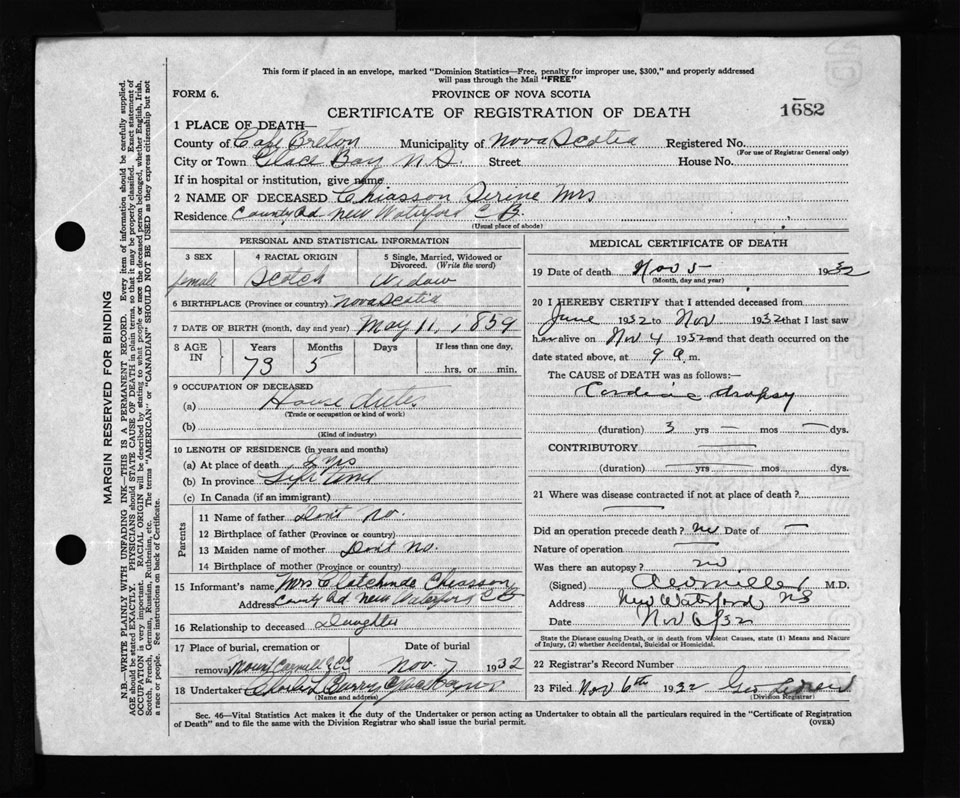 This form if placed in an envelope, marked "Dominion Statistics—Free, penalty for improper use, $300," and properly addressed
will pass through the Mail "FREE"
FORM 6.
PROVINCE OF NOVA SCOTIA
CERTIFICATE OF REGISTRATION OF DEATH
1682
1 PLACE OF DEATH—
County of Cape Breton Municipality of Nova Scotia Registered No.
(For use of Registrar General only)
City or Town Glace Bay N.S. Street House No.
If in hospital or institution, give name
2 NAME OF DECEASED Chiasson Mrs
Residence County Rd New Waterford C B.
(Usual place of abode)
PERSONAL AND STATISTICAL INFORMATION
3 SEX
4 RACIAL ORIGIN
5 Single, Married, Widowed or Divorced. (Write the word)
female Scotch Widow
6 BIRTHPLACE (Province or country) Nova Scotia
7 DATE OF BIRTH (month, day and year) May 11, 1859
8 AGE IN
Years Months Days If less than one day,
73 5 hrs. or min.
9 OCCUPATION OF DECEASED
(a) House duties
(Trade or occupation or kind of work)
(b)
(Kind of industry)
10 LENGTH OF RESIDENCE (in years and months)
(a) At place of death yrs
(b) In province Life time
(c) In Canada (if an immigrant)
Parents
11 Name of father Dont no.
12 Birthplace of father (Province or country)
13 Maiden name of mother Dont no.
14 Birthplace of mother (Province or country)
15 Informant's name Mrs Chiasson
Address County Rd New Waterford C B
16 Relationship to deceased Daughter
17 Place of burial, cremation or removal Mount Carmell Date of burial Nov. 7 1932
18 Undertaker Charles L Curry Glace Bay
(Name and address)
MEDICAL CERTIFICATE OF DEATH
19 Date of death Nov 5 1932
(Month, day and year)
20 I HEREBY CERTIFY that I attended deceased from
June 1932 to Nov 1932 that I last saw
her alive on Nov 4 1932 and that death occurred on the
date stated above, at 9 a.m.
The CAUSE OF DEATH was as follows:—
Cardiac dropsy
(duration) 3 yrs — mos — dys.
CONTRIBUTORY —
(duration) — yrs — mos. dys.
21 Where was disease contracted if not at place of death?
Did an operation precede death? no Date of —
Nature of operation —
Was there an autopsy? no
(Signed) Miller M.D.
Address New Waterford NS
Date Nov 6/32
State the Disease causing Death, or in death from Violent Causes, state (1) Means and Nature
of Injury, (2) whether Accidental, Suicidal or Homicidal.
22 Registrar's Record Number
23 Filed Nov 6th 1932 Geo
(Division Registrar)
Sec. 46—Vital Statistics Act makes it the duty of the Undertaker or person acting as Undertaker to obtain all the particulars required in the "Certificate of Registration
of Death" and to file the same with the Division Registrar who shall issue the burial permit.
(OVER)
MARGIN RESERVED FOR BINDING
N.B.—WRITE PLAINLY WITH UNFADING INK—THIS IS A PERMANENT RECORD. Every item of information should be carefully supplied.
AGE should be stated EXACTLY. PHYSICIANS should STATE CAUSE OF DEATH in plain terms, so that it may be properly classified. Exact statement of
OCCUPATION is very important. RACIAL ORIGIN will be described by stating to what people or race the deceased person belonged, whether English, Irish,
Scotch, French, German, Russian, Ruthenian, etc. The terms "AMERICAN" or "CANADIAN" SHOULD NOT BE USED as they express citizenship but not
a race or people. See instructions on back of Certificate.